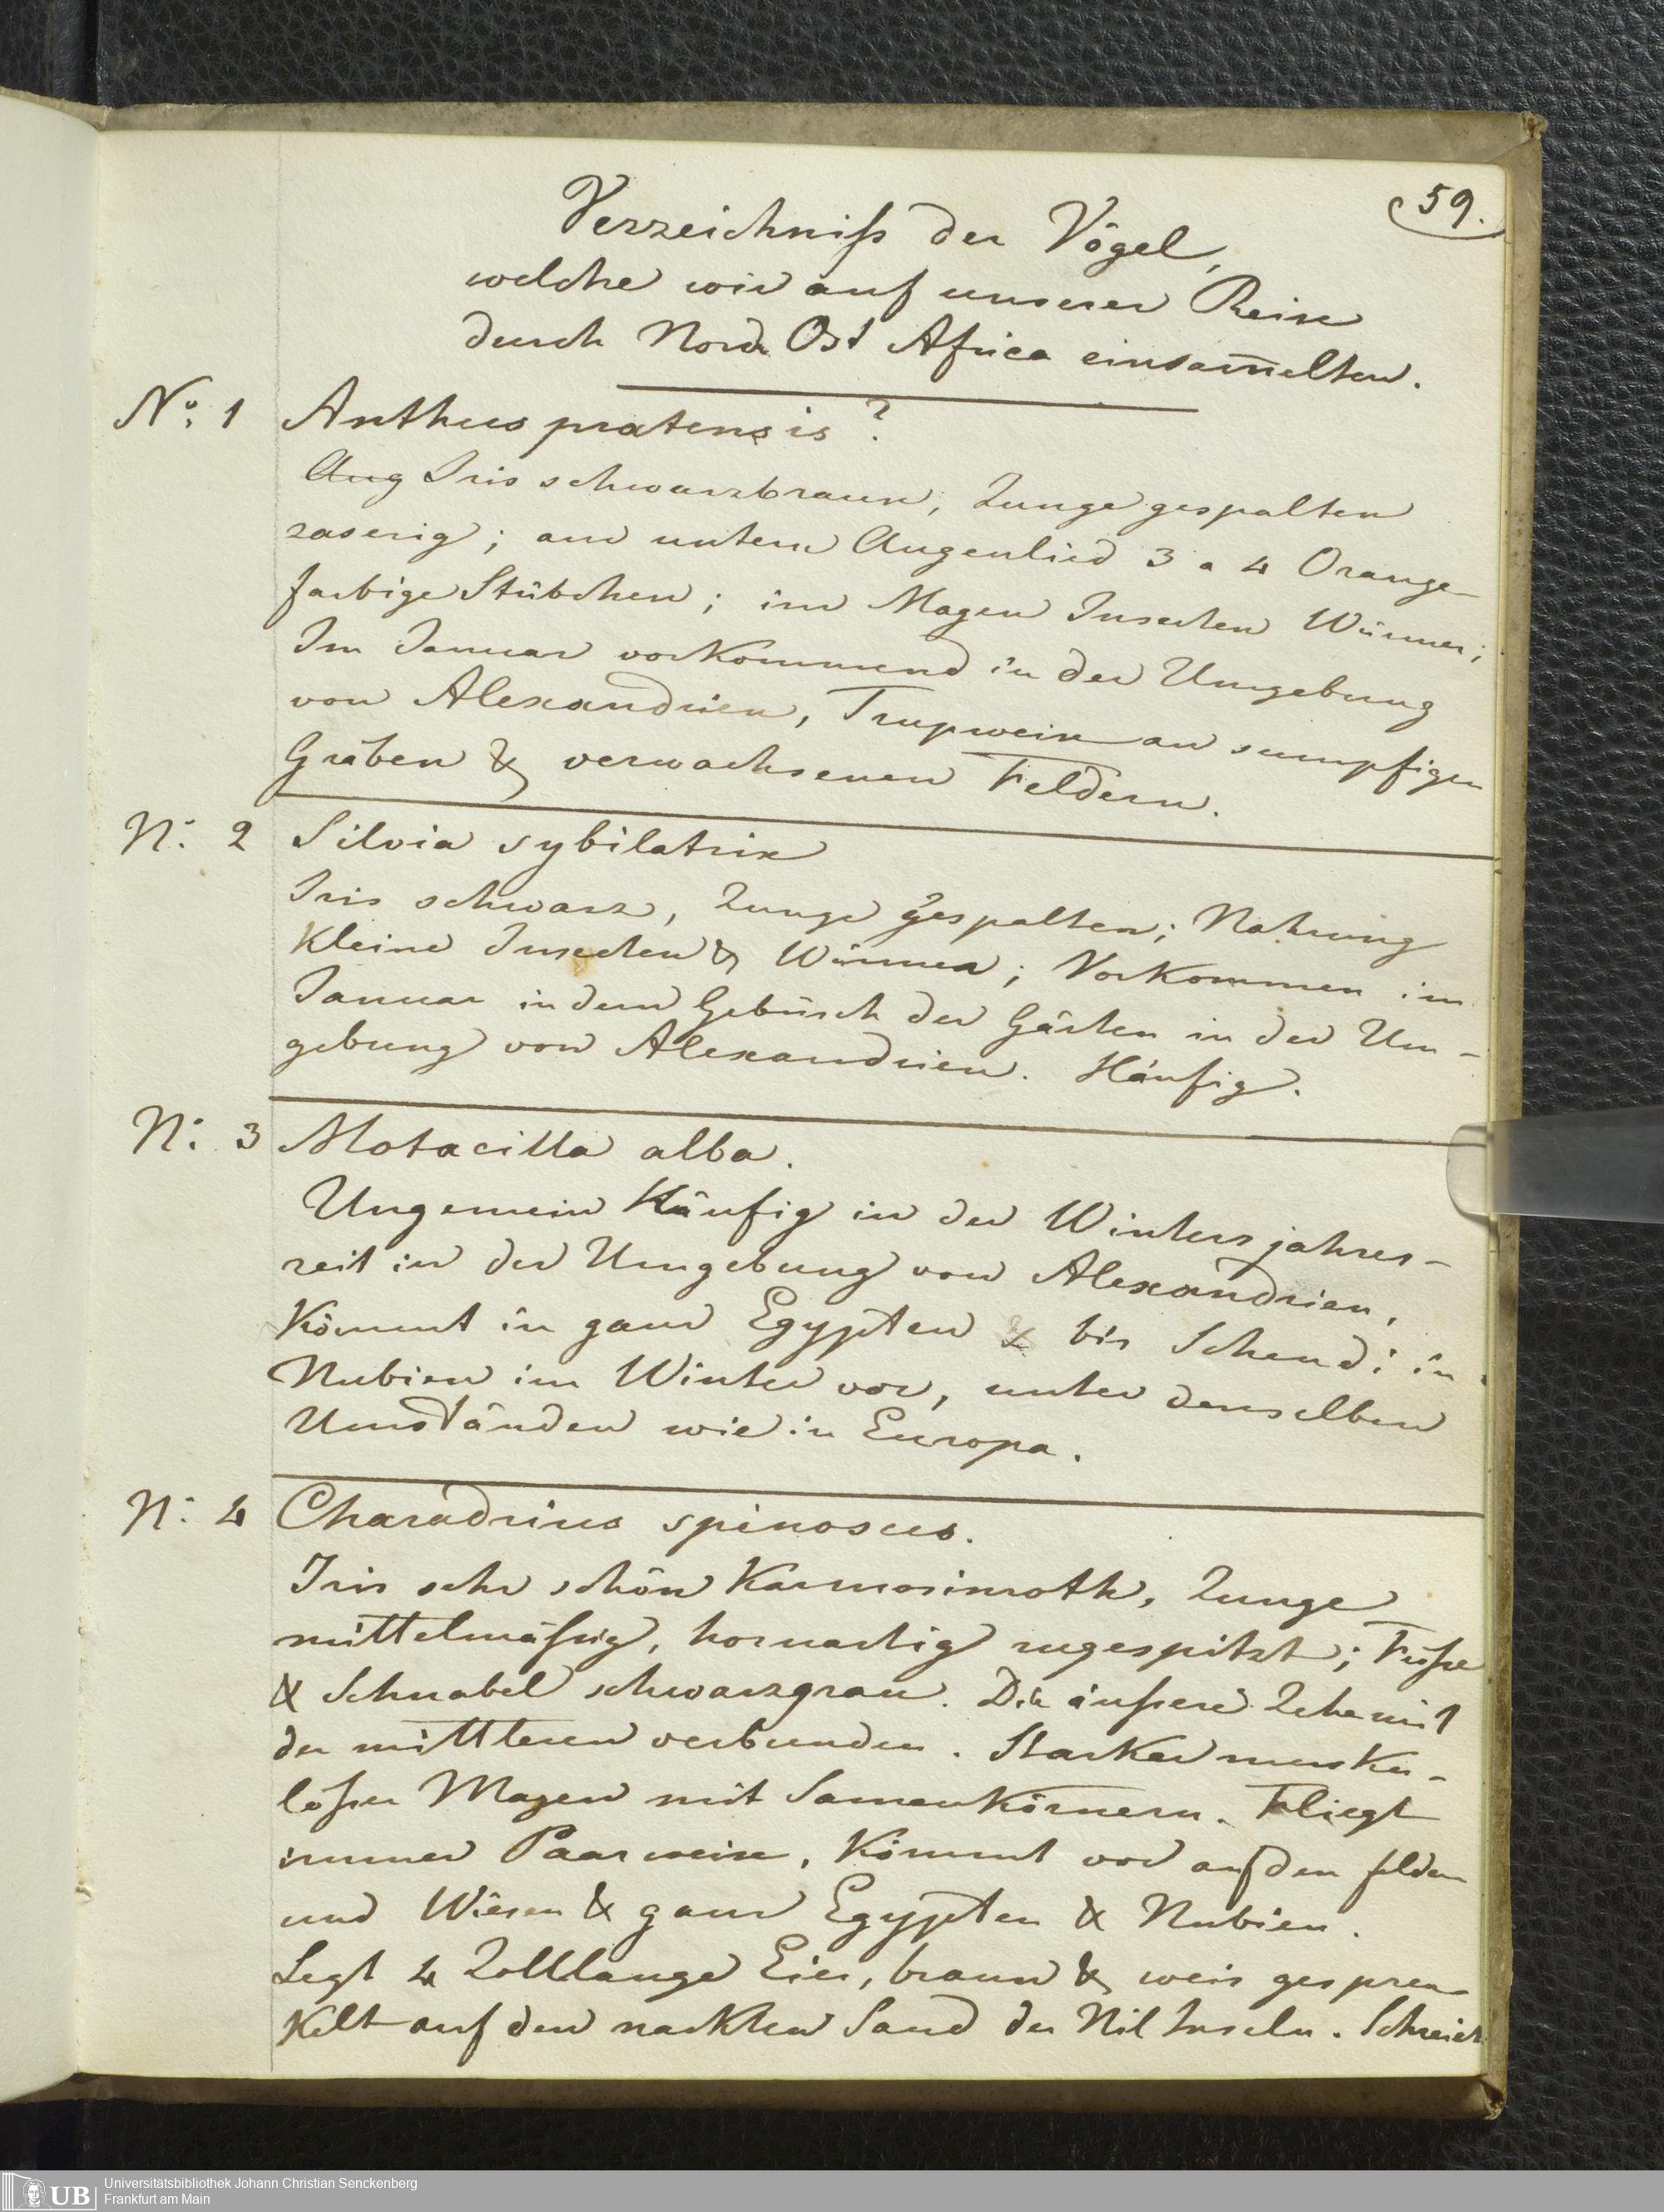 59.
Verzeichniß der Vögel,
welche wir auf unserer Reise
durch Nord Ost Africa einsam̅elten.
No: 1 Anthus pratensis ?
Aug Iris schwarzbraun, Zunge gespalten
zaserig; am untern Augenlied 3 a 4 Orange
farbige Stübchen; im Magen Insecten Würmer;
Im Januar vorkommend in der Umgebung
von Alexandrien, Trupweise an sumpfigen
Gräben & verwachsenen Feldern.
N: 2 Silvia sybilatrix
Iris schwarz, Zunge gespalten; Nahrung
kleine Insecten & Würmer; Vorkommen im
Januar in dem Gebüsch der Gärten in der Um-
gebung von Alexandrien. Häufig.
N: 3 Motacilla alba.
Ungemein Häufig in der Winters jahres-
zeit in der Umgebung von Alexandrien,
Kömmt in ganz Egypten & bis Schendi in
Nubien im Winter vor, unter denselben
Umständen wie in Europa.
N: 4 Charadrius spinosus.
Iris sehr schön Karmosinroth, Zunge
mittelmäßig, hornartig zugespitzt; Füße
& Schnabel schwarzgrau. Die äußere Zehe mit
der mittleren verbunden. Starker musku-
löser Magen mit Samenkörnern. Fliegt
immer Paarweise, Kömmt vor auf den felden
und Wiesen & ganz Egypten & Nubien.
Legt 4 Zolllange Eier, braun & weis gespren-
kelt auf den nackten Sand der Nil Inseln. Schreiet
UB Universitätsbibliothek Johann Christian Senckenberg
Frankfurt am Main